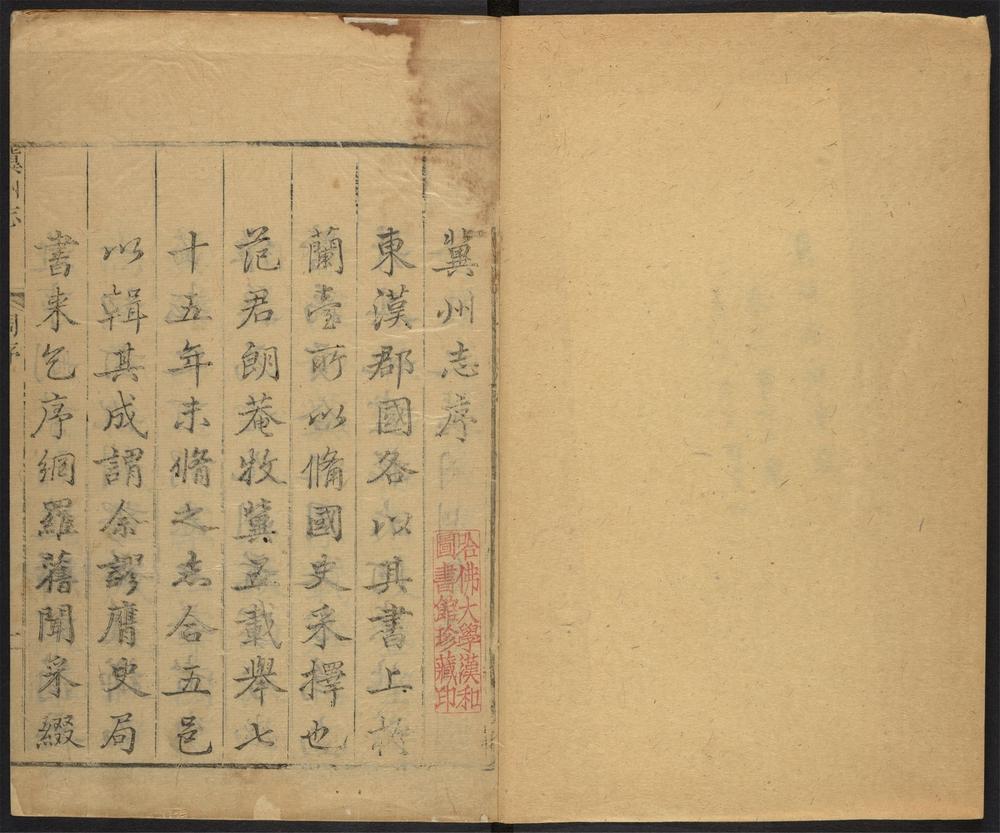 冀州志序
東漢郡國各以其書上於
蘭臺所以俻國史采擇也
范君朗菴牧冀五載舉七
十五年未脩之志合五邑
以輯其成謂余謬膺史局
書来乞序網羅舊聞采綴
哈佛大學漢和
圖書館珍藏印
冀州志
序
一